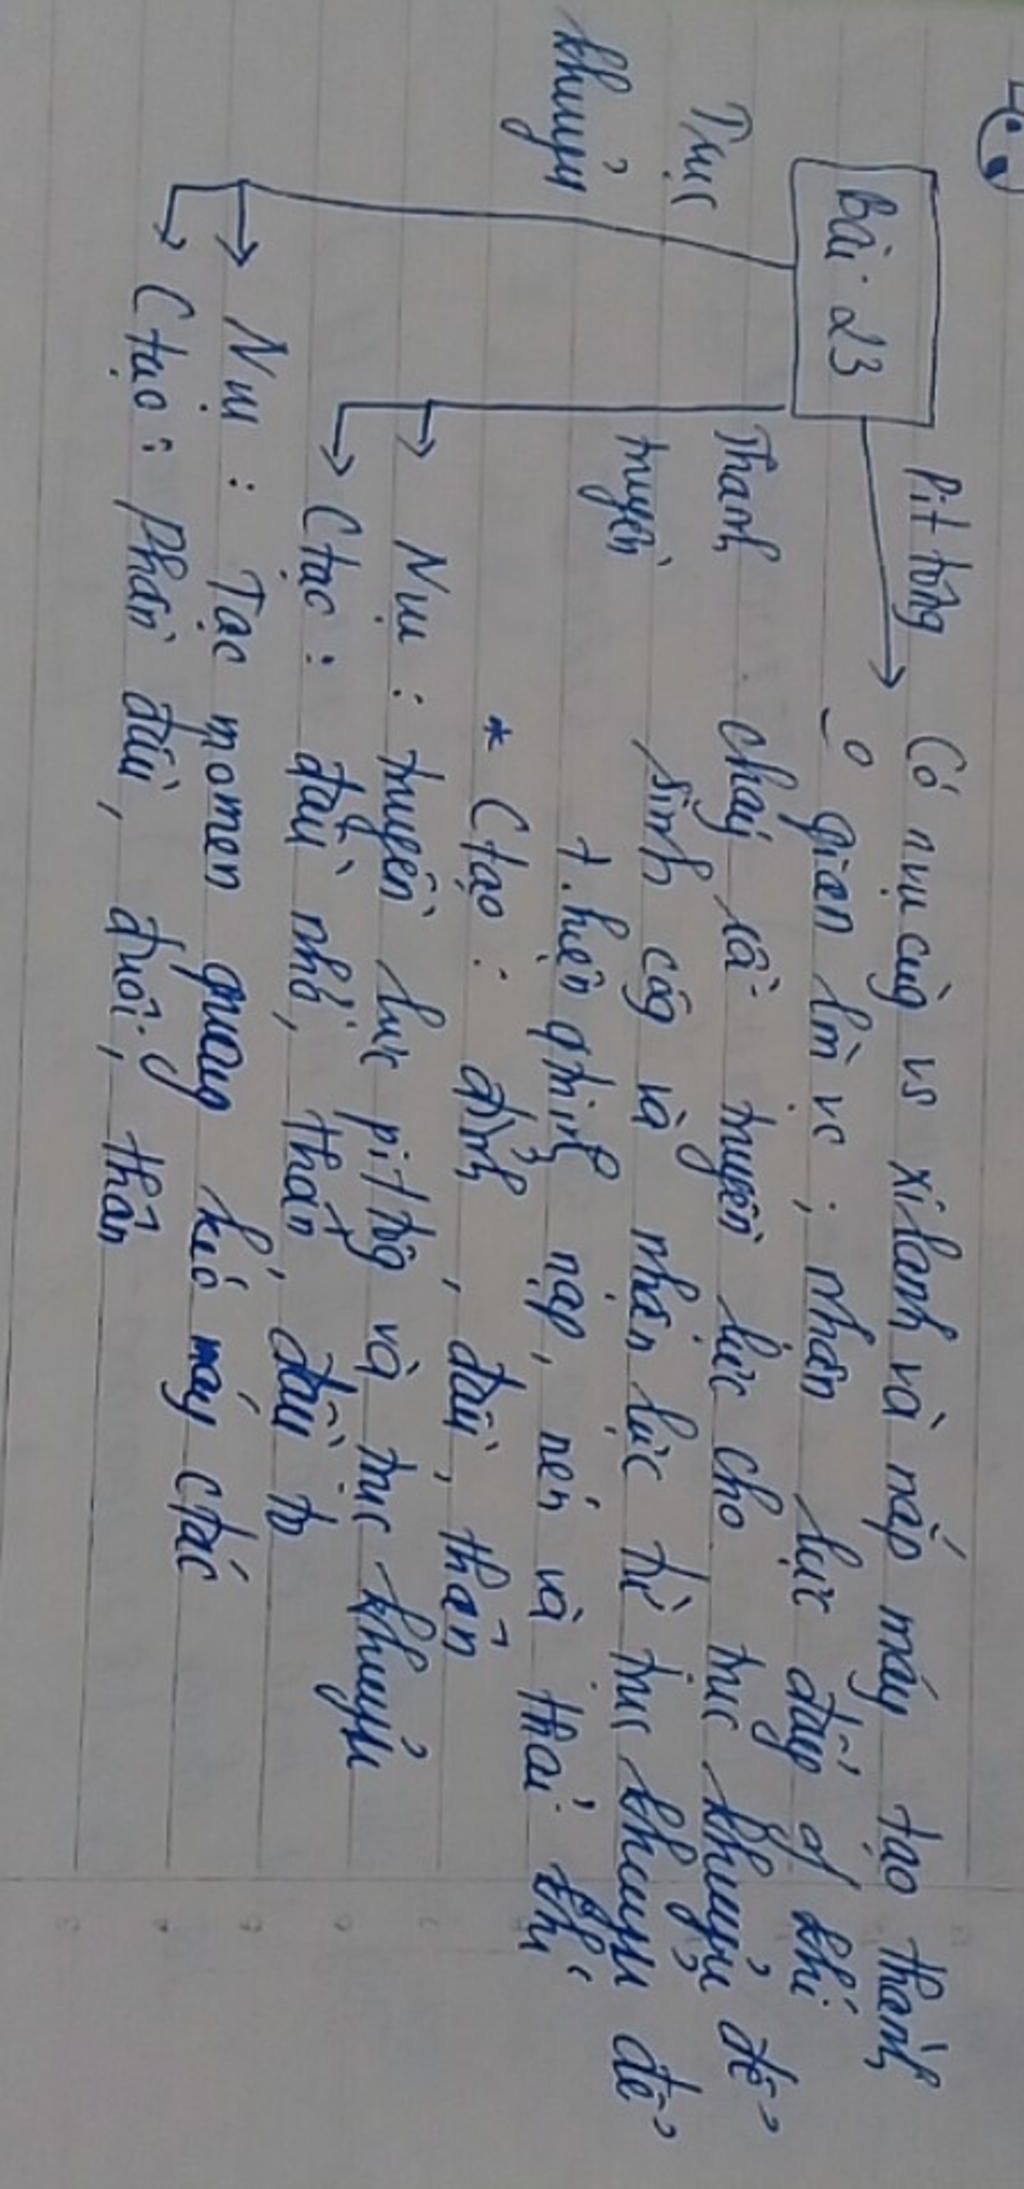 Bài 23
Pit tông
Có nvụ cùng vs xilanh và nắp máy tạo thành
gian lm vc ; nhận lực đẩy of khí
cháy rồi truyền lực cho trục khuỷu để
sinh côg và nhận lực từ trục khuỷu để
t.hiện qtrình nạp, nén và thải khí
* Ctạo : đỉnh, đầu, thân
Thanh
truyền
Nvụ : truyền lực pit tôg và trục khuỷu
Ctạo : đầu nhỏ, thân, đầu to
Trục
khuỷu
Nvụ : Tạo momen quay kéo máy ctác
Ctạo : Phần đầu, đuôi, thân